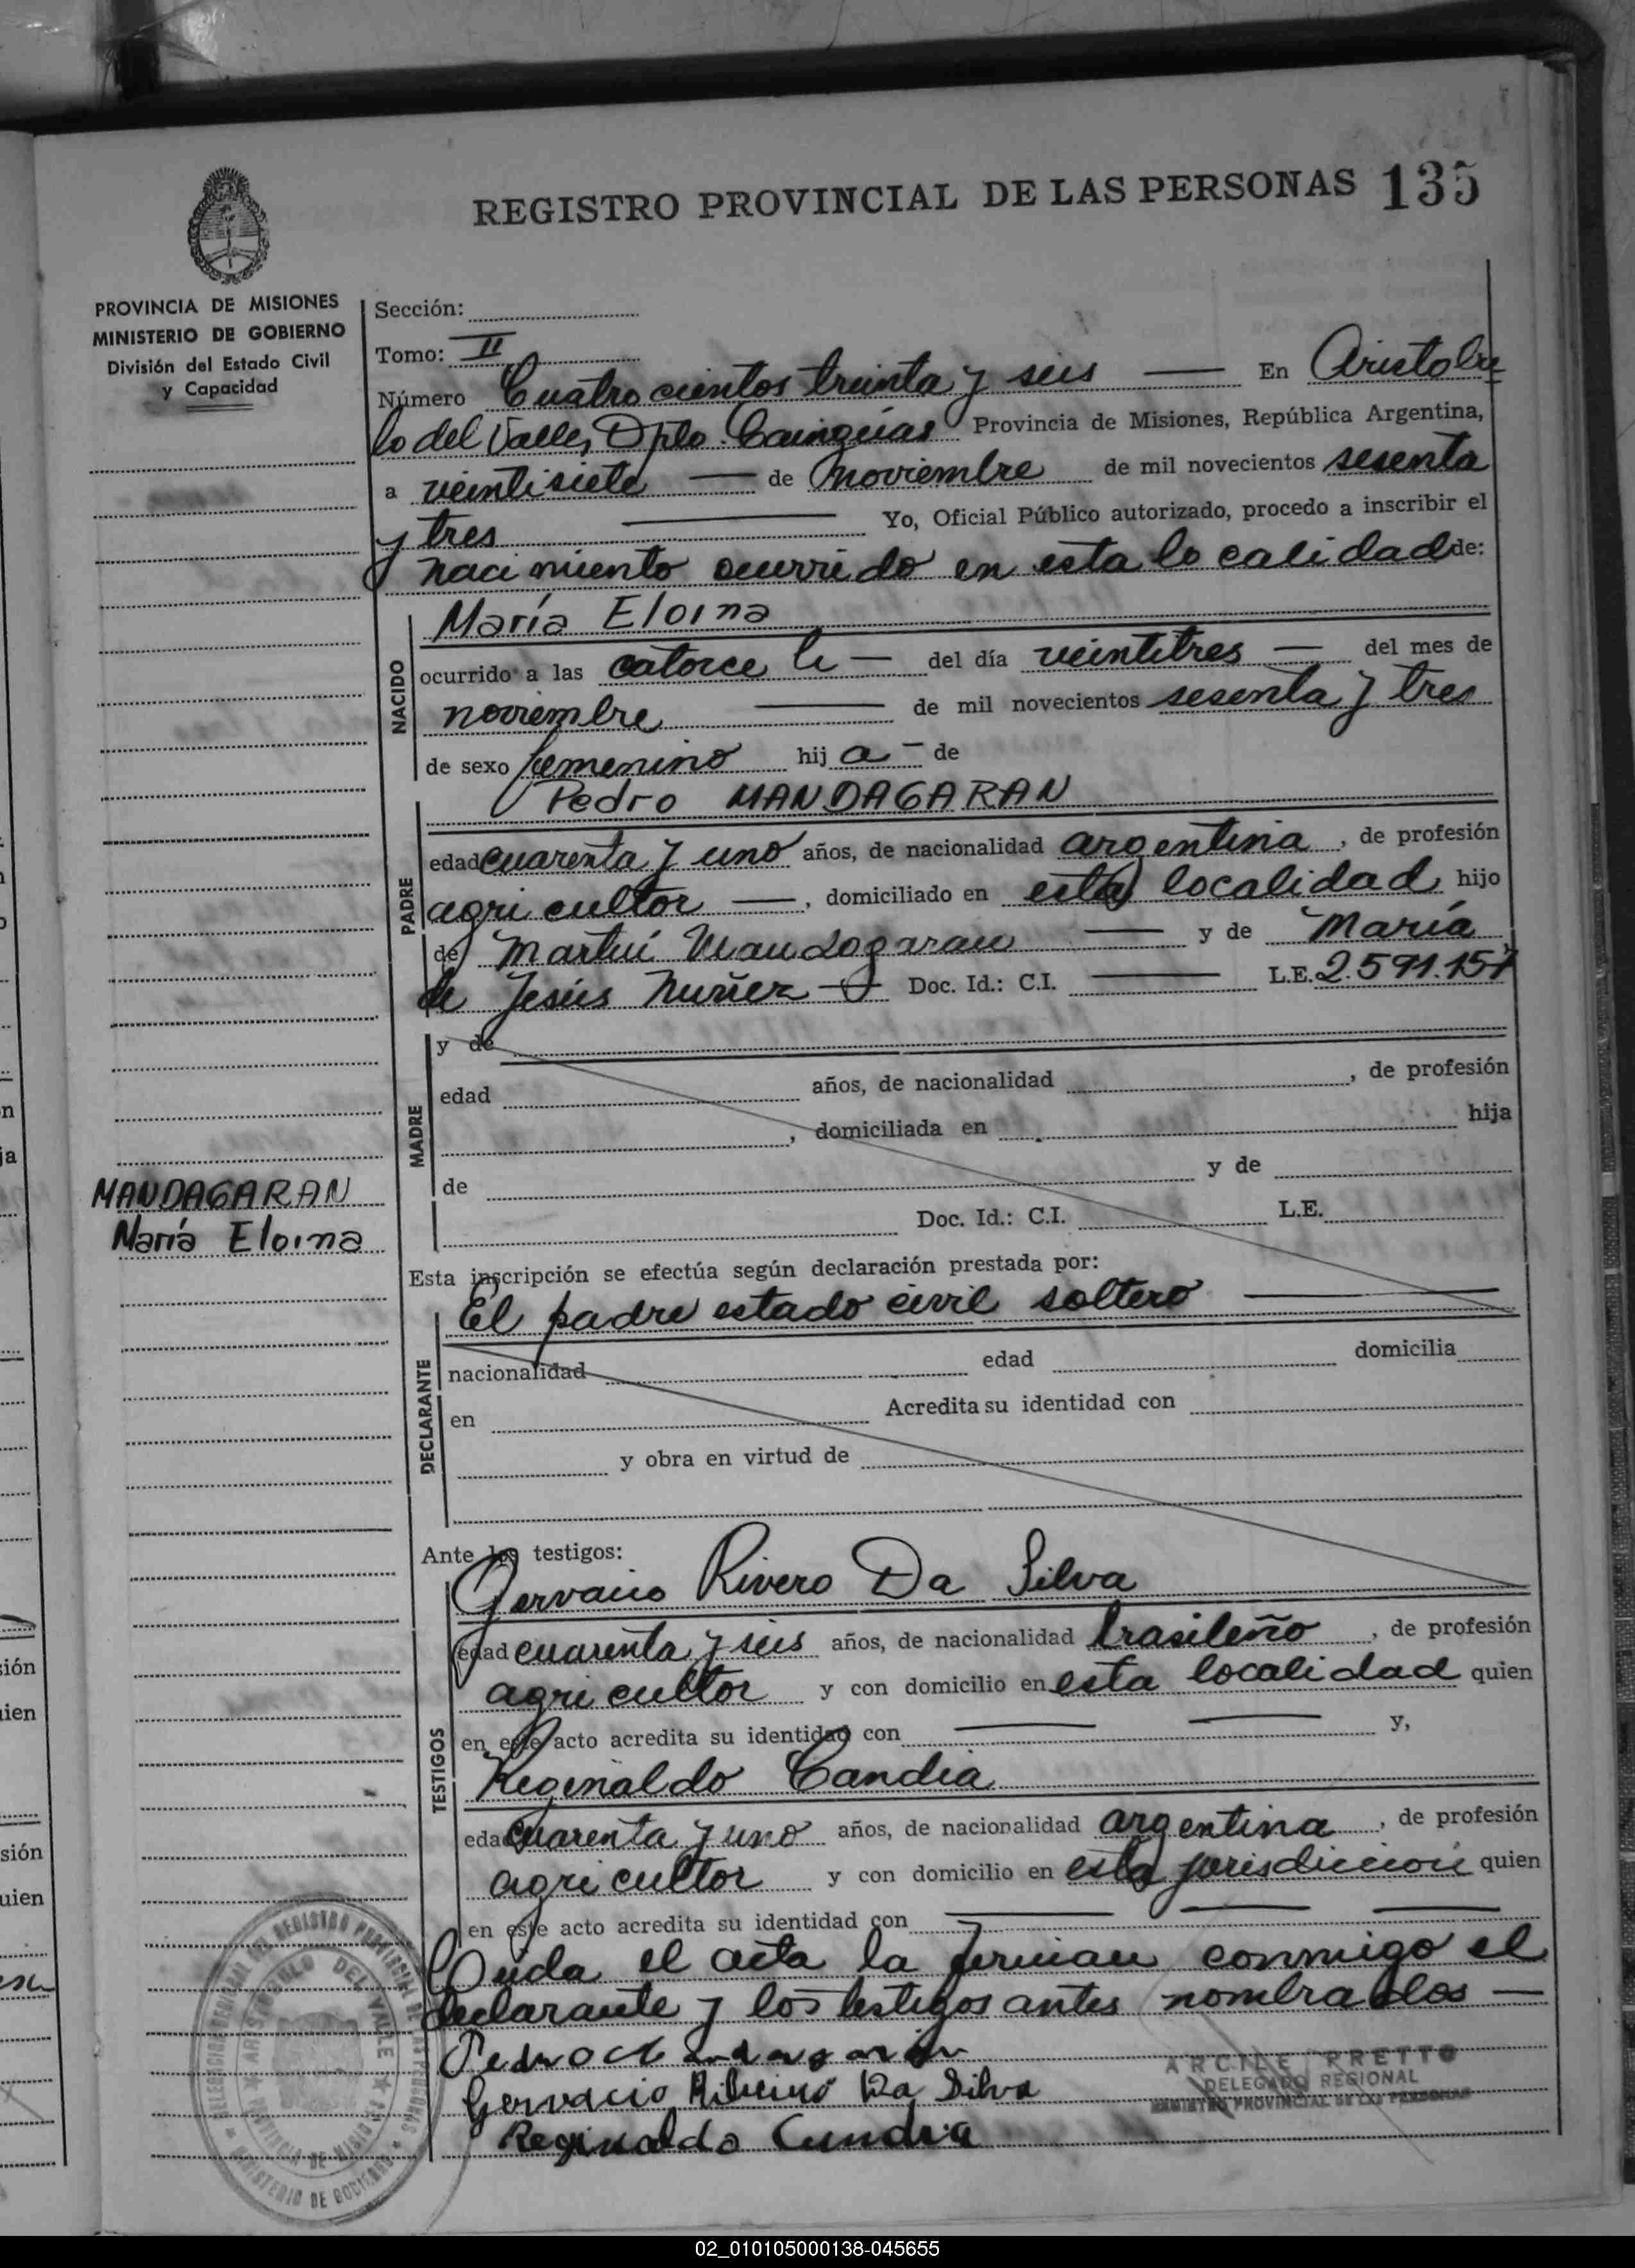 REGISTRO PROVINCIAL DE LAS PERSONAS 135
PROVINCIA DE MISIONES
MINISTERIO DE GOBIERNO
División del Estado Civil
y Capacidad
Sección:
Tomo: II
Número Cuatrocientos treinta y seis — En Aristobu
lo del Valle, Dpto. Cainguías Provincia de Misiones, República Argentina,
a veintisiete — de noviembre de mil novecientos sesenta
y tres — Yo, Oficial Público autorizado, procedo a inscribir el
nacimiento ocurrido en esta localidad de:
NACIDO
María Eloina
ocurrido a las catorce h — del día veintitres — del mes de
noviembre — de mil novecientos sesenta y tres
de sexo femenino hij a — de
PADRE
Pedro MANDAGARAN
edad cuarenta y uno años, de nacionalidad argentina, de profesión
agricultor —, domiciliado en esta localidad hijo
de Martín Mandagaran — y de María
de Jesús Nuñez — Doc. Id.: C.I. — L.E. 2.591.157
MADRE
y de
edad años, de nacionalidad , de profesión
, domiciliada en hija
de y de
Doc. Id.: C.I. L.E.
MANDAGARAN
María Eloina
Esta inscripción se efectúa según declaración prestada por:
El padre estado civil soltero —
DECLARANTE
nacionalidad edad domicilia
en Acredita su identidad con
y obra en virtud de
Ante los testigos:
TESTIGOS
Gervacio Rivero Da Silva
edad cuarenta y seis años, de nacionalidad brasileño, de profesión
agricultor y con domicilio en esta localidad quien
en este acto acredita su identidad con — — y,
Reginaldo Candia
edad cuarenta y uno años, de nacionalidad argentina, de profesión
agricultor y con domicilio en esta jurisdiccion quien
en este acto acredita su identidad con — — —
Leida el acta la firman conmigo el
declarante y los testigos antes nombrados —
Pedro Mandagaran
Gervacio Ribeiro Da Silva
Reginaldo Candia
ARCILE PRETTO
DELEGADO REGIONAL
REGISTRO PROVINCIAL DE LAS PERSONAS
02_010105000138-045655